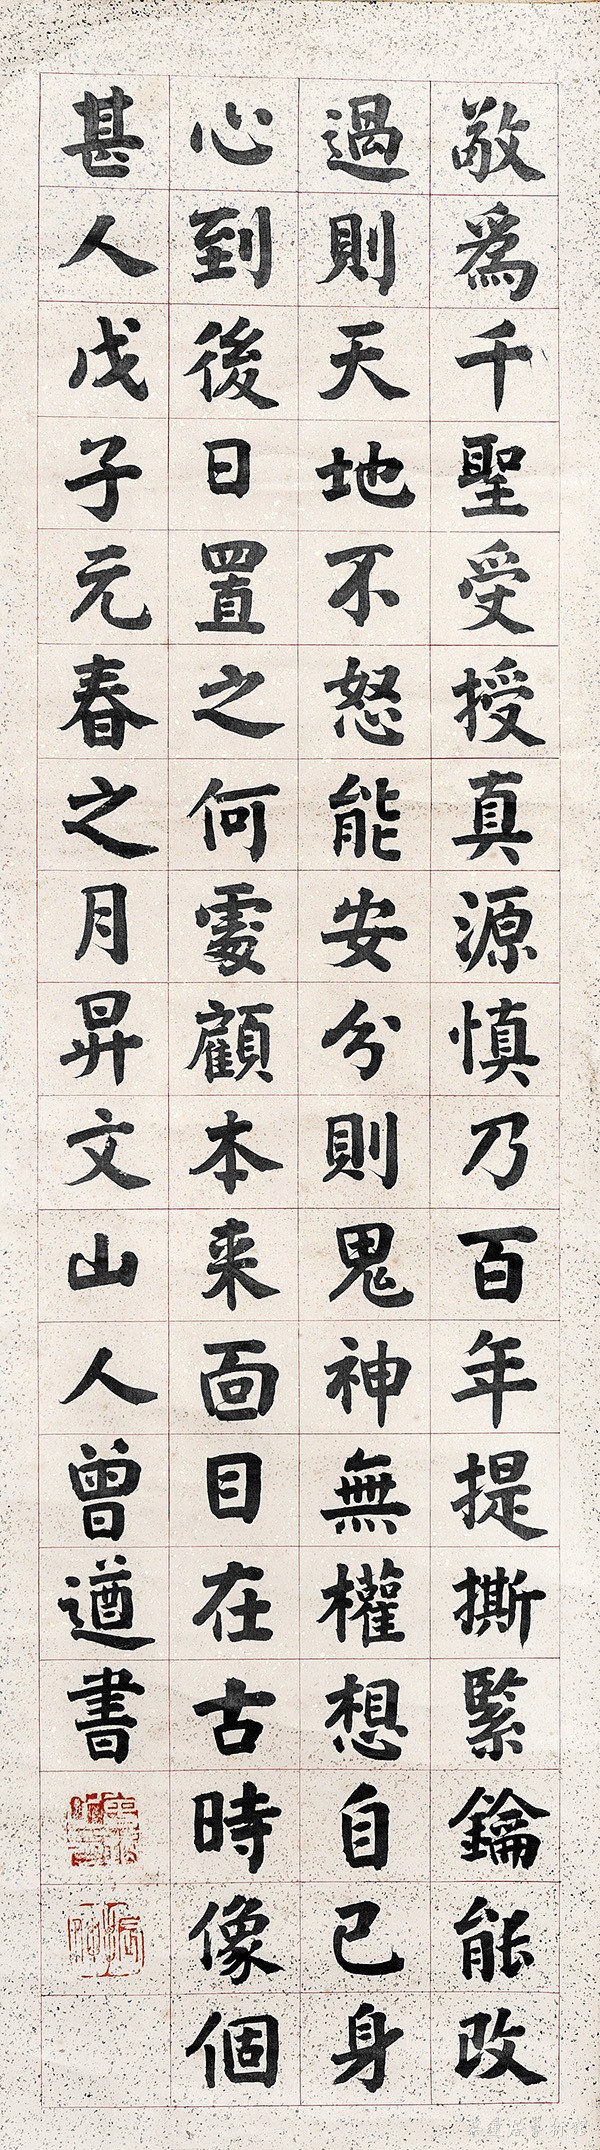 敬為千聖受授真源慎乃百年提撕緊鑰能改
過則天地不怒能安分則鬼神無權想自己身
心到後日置之何處顧本来面目在古時像個
甚人戊子元春之月昇文山人曾遒書